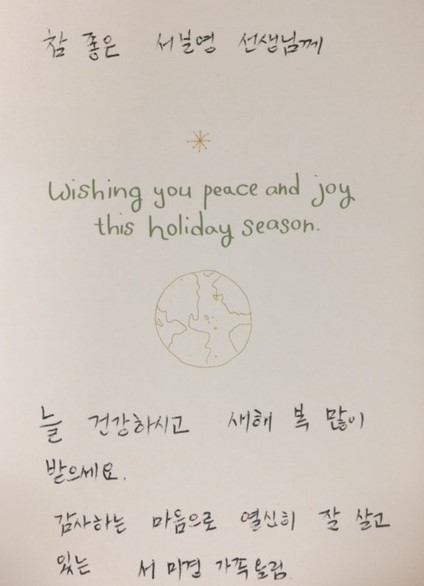 참 좋은 서보영 선생님께
Wishing you peace and joy
this holiday season.
늘 건강하시고 새해 복 많이
받으세요.
감사하는 마음으로 열심히 잘 살고
있는 서미경 가족올림